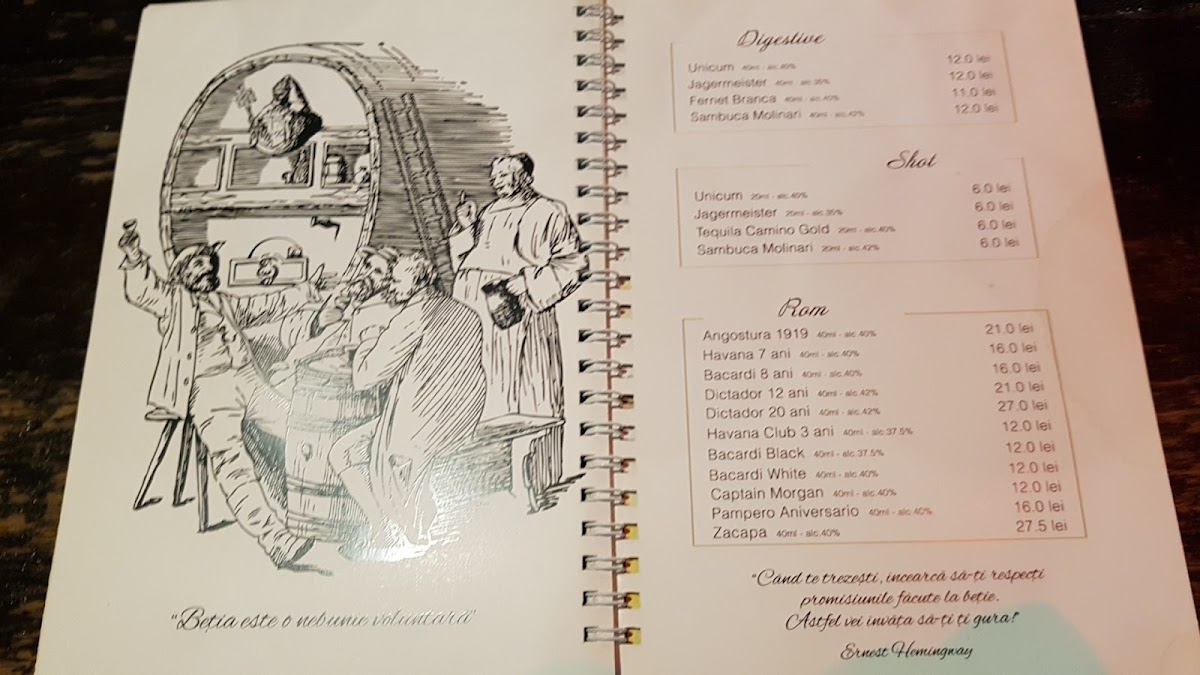 "Beția este o nebunie voluntară"
Digestive
Unicum 40ml - alc.40% 12.0 lei
Jagermeister 40ml - alc.35% 12.0 lei
Fernet Branca 40ml - alc.40% 11.0 lei
Sambuca Molinari 40ml - alc.42% 12.0 lei
Shot
Unicum 20ml - alc.40% 6.0 lei
Jagermeister 20ml - alc.35% 6.0 lei
Tequila Camino Gold 20ml - alc.40% 6.0 lei
Sambuca Molinari 20ml - alc.42% 6.0 lei
Rom
Angostura 1919 40ml - alc.40% 21.0 lei
Havana 7 ani 40ml - alc.40% 16.0 lei
Bacardi 8 ani 40ml - alc.40% 16.0 lei
Dictador 12 ani 40ml - alc.42% 21.0 lei
Dictador 20 ani 40ml - alc.42% 27.0 lei
Havana Club 3 ani 40ml - alc.37.5% 12.0 lei
Bacardi Black 40ml - alc.37.5% 12.0 lei
Bacardi White 40ml - alc.40% 12.0 lei
Captain Morgan 40ml - alc.40% 12.0 lei
Pampero Aniversario 40ml - alc.40% 16.0 lei
Zacapa 40ml - alc.40% 27.5 lei
"Când te trezești, incearcă să-ți respecți
promisiunile făcute la beție.
Astfel vei invăța să-ți ți gura!"
Ernest Hemingway